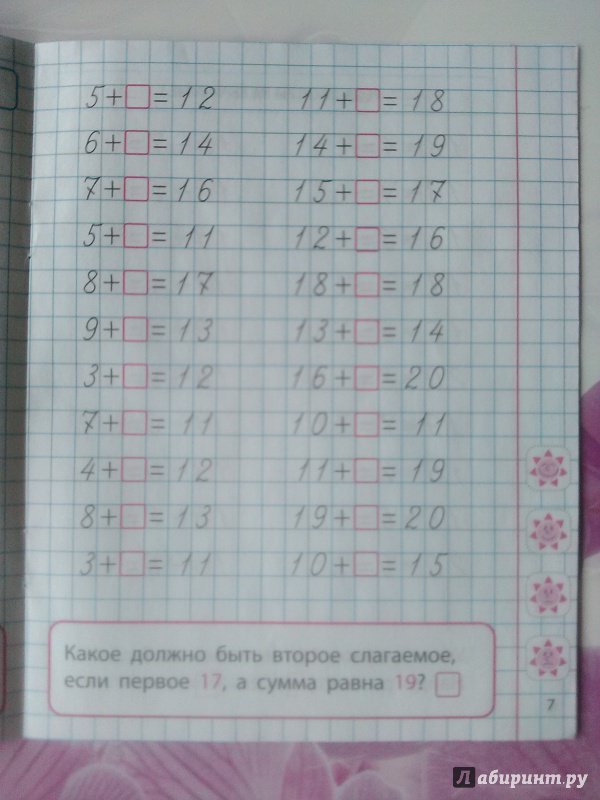 5+□=12
6+□=14
7+□=16
5+□=11
8+□=17
9+□=13
3+□=12
7+□=11
4+□=12
8+□=13
3+□=11
11+□=18
14+□=19
15+□=17
12+□=16
18+□=18
13+□=14
16+□=20
10+□=11
11+□=19
19+□=20
10+□=15
Какое должно быть второе слагаемое,
если первое 17, а сумма равна 19? □
7
Лабиринт.ру